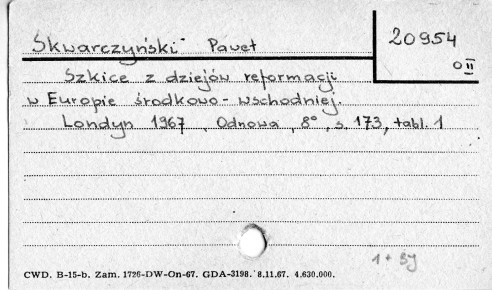 Skwarczyński Paweł
20954
0 II
Szkice z dziejów reformacji
w Europie środkowo-wschodniej.
Londyn 1967, Odnowa, 8°, s. 173, tabl. 1
CWD. B-15-b. Zam. 1726-DW-On-67. GDA-3198. 8.11.67. 4.630.000.